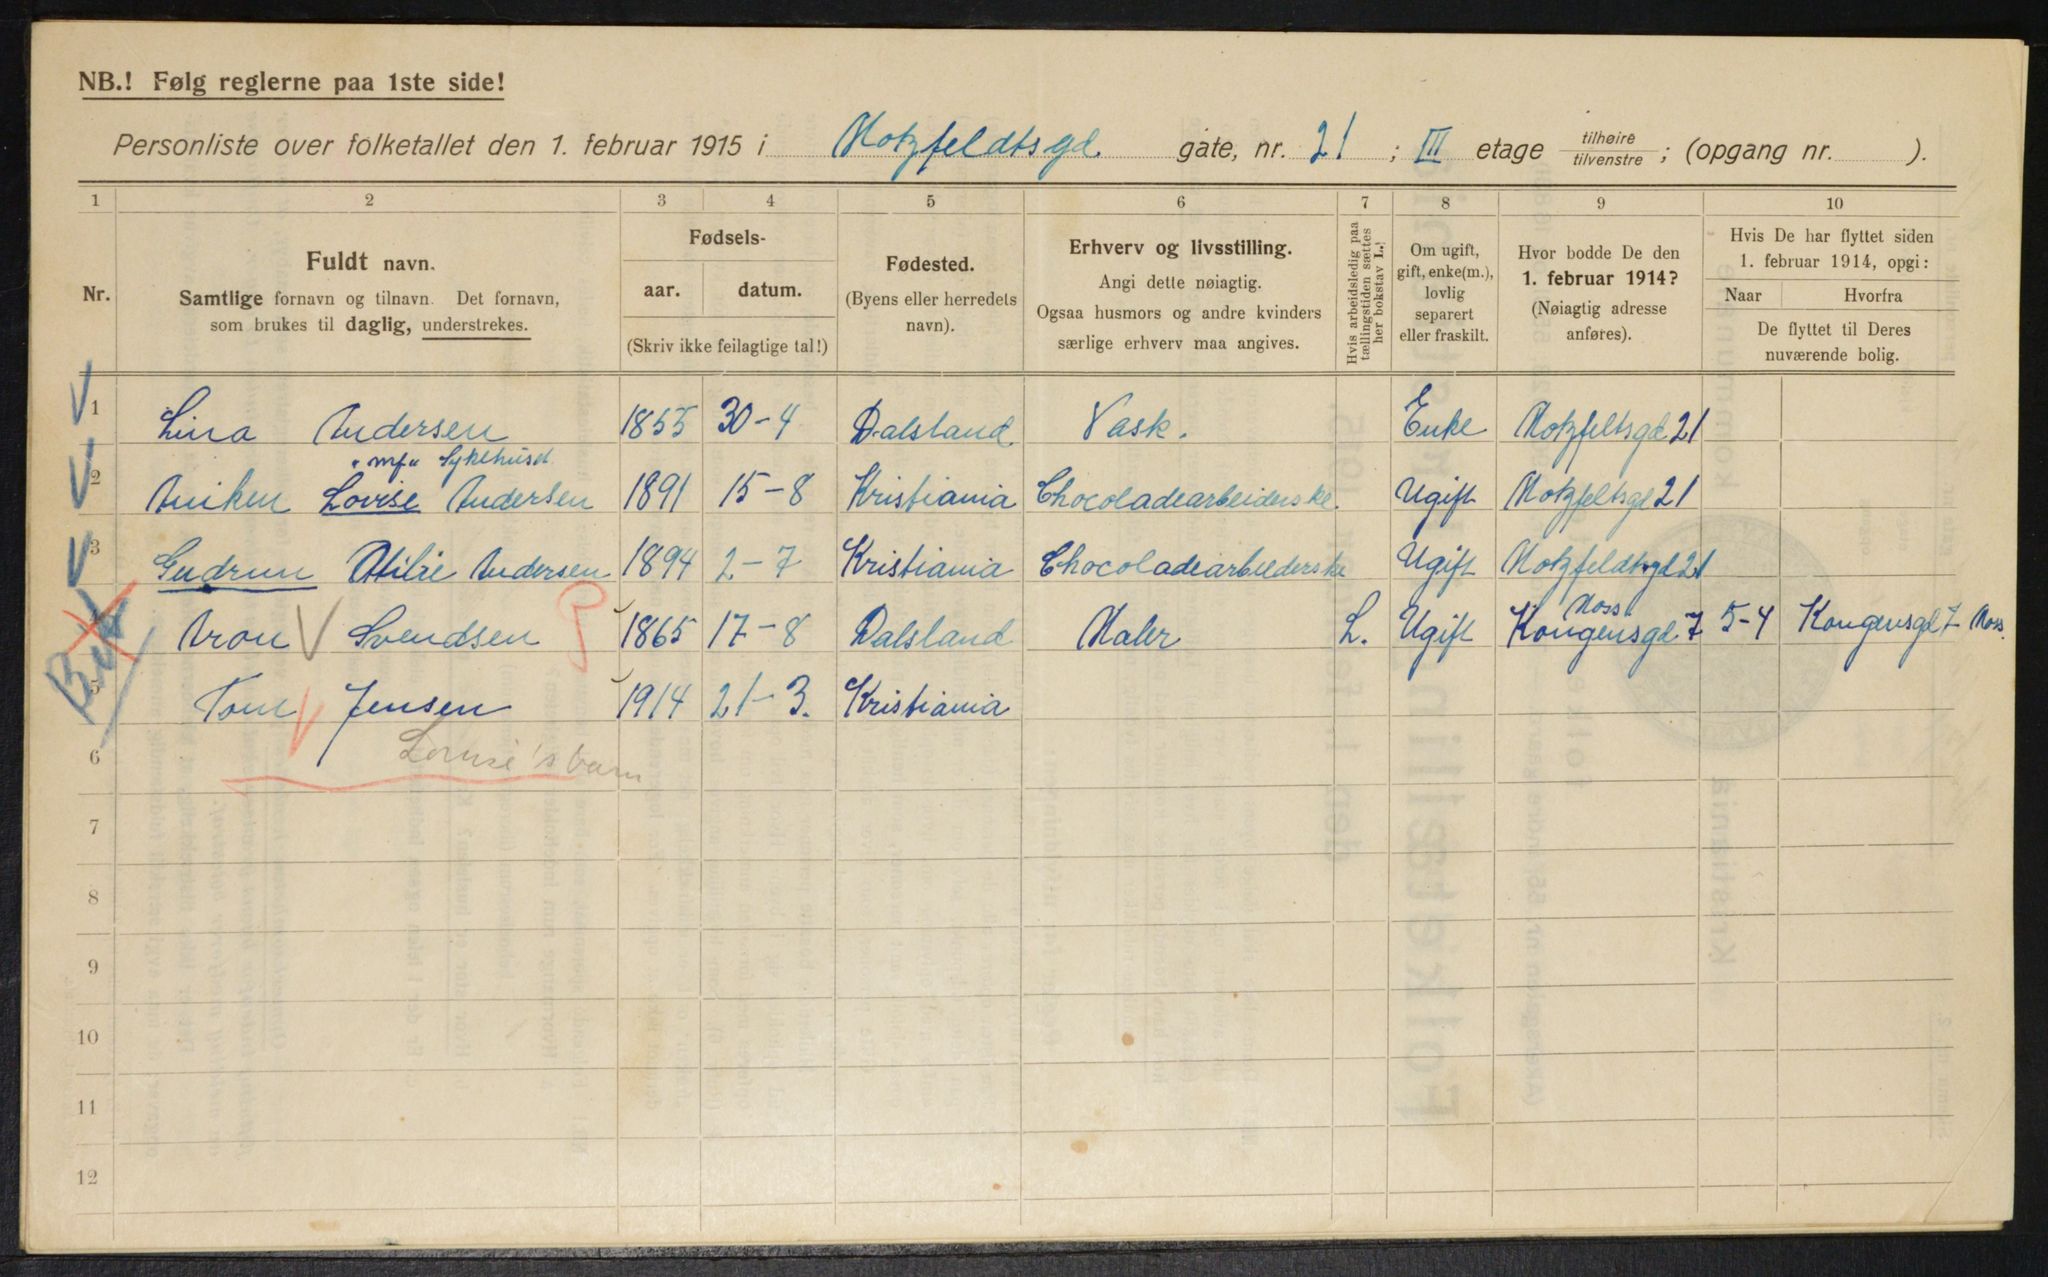 NB.! Følg reglerne paa 1ste side!
Personliste over folketallet den 1. februar 1915 i Motzfeldtsgd gate, nr. 21 ; III etage tilhøire tilvenstre ; (opgang nr. ).
1 2 3 4 5 6 7 8 9 10
Nr.
Fuldt navn.
Samtlige fornavn og tilnavn. Det fornavn,
som brukes til daglig, understrekes.
Fødsels-
aar. datum.
(Skriv ikke feilagtige tal!)
Fødested.
(Byens eller herredets
navn).
Erhverv og livsstilling.
Angi dette nøiagtig.
Ogsaa husmors og andre kvinders
særlige erhverv maa angives.
Hvis arbeidsledig paa
tællingstiden sættes
her bokstav L.!
Om ugift,
gift, enke(m.),
lovlig
separert
eller fraskilt.
Hvor bodde De den
1. februar 1914?
(Nøiagtig adresse
anføres).
Hvis De har flyttet siden
1. februar 1914, opgi:
Naar Hvorfra
De flyttet til Deres
nuværende bolig.
1 Lina Andersen 1855 30-4 Dalsland Vask. Enke Motzfeltsgd 21
Sykehuset
2 Aniken Lovise Andersen 1891 15-8 Kristiania Chocoladearbeiderske. Ugift Motzfeltsgd 21
3 Gudrun Otilie Andersen 1894 2-7 Kristiania Chocoladearbeiderske Ugift Motzfeldtsgd 21
Moss
4 Aron Svendsen 1865 17-8 Dalsland Maler L. Ugift Kongensgd 7 5-4 Kongensgd 7 Moss.
5 Tom Jensen 1914 21-3. Kristiania
6 Louise's barn
7
8
9
10
11
12